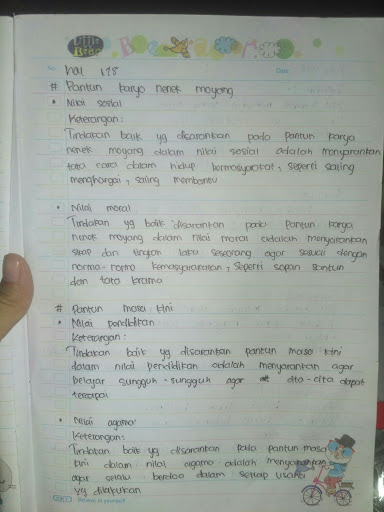 Little Bird
No. Hal 178 Date
# Pantun karya nenek moyang
• Nilai sosial
Keterangan:
Tindakan baik yg disarankan pada pantun karya
nenek moyang dalam nilai sosial adalah menyarankan
tata cara dalam hidup bermasyarakat, seperti saling
menghargai, saling membantu
• Nilai moral
Tindakan yg baik disarankan pada pantun karya
nenek moyang dalam nilai moral adalah menyarankan
sikap dan tingkah laku seseorang agar sesuai dengan
norma-norma kemasyarakatan, seperti sopan santun
dan tata krama
# Pantun masa kini
• Nilai pendidikan
Keterangan:
Tindakan baik yg disarankan pantun masa kini
dalam nilai pendidikan adalah menyarankan agar
belajar sungguh-sungguh agar cita-cita dapat
tercapai
• Nilai agama
Keterangan:
Tindakan baik yg disarankan pada pantun masa
kini dalam nilai agama adalah menyarankan
agar selalu berdoa dalam setiap usaha
yg dilakukan
Believe in yourself